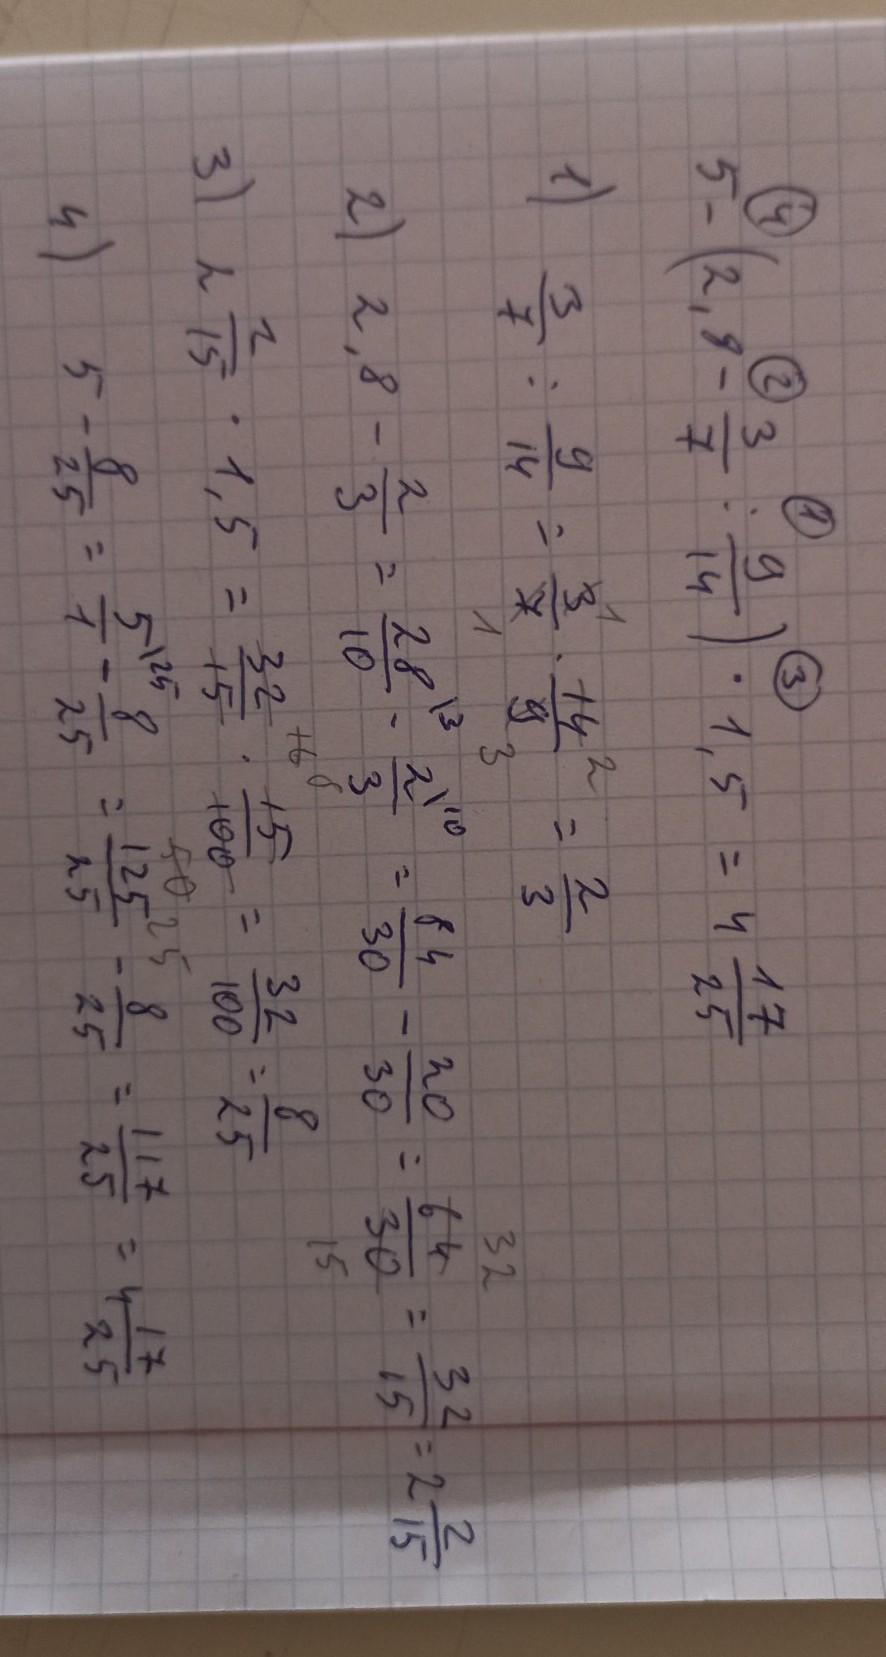 ④ ② ① ③
5 - (2,8 - 3/7 : 9/14) · 1,5 = 4 17/25
1) 3/7 : 9/14 = 3/7 · 14/9 = 2/3
2) 2,8 - 2/3 = 28/10 - 2/3 = 84/30 - 20/30 = 64/30 = 32/15 = 2 2/15
3) 2 2/15 · 1,5 = 32/15 · 15/100 = 32/100 = 8/25
4) 5 - 8/25 = 5/1 - 8/25 = 125/25 - 8/25 = 117/25 = 4 17/25